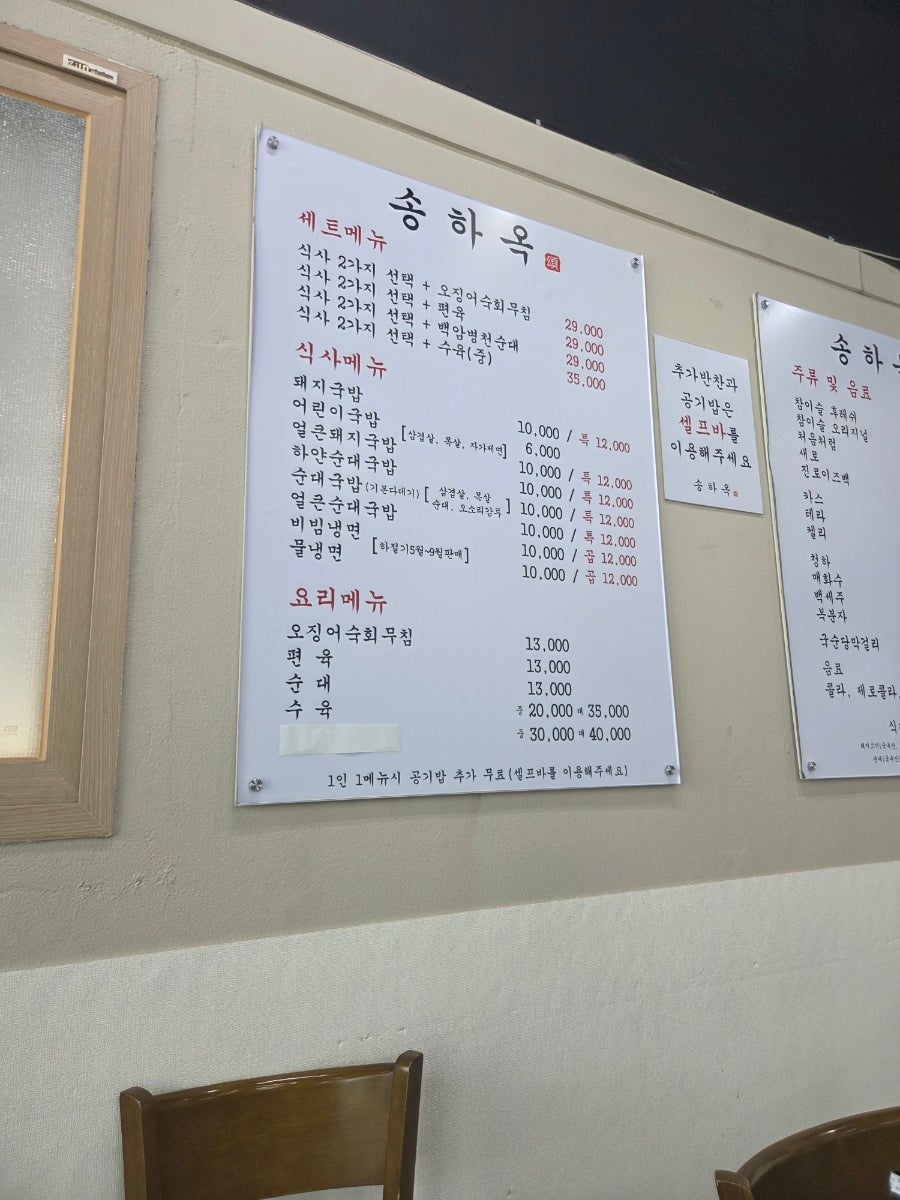 송하옥
세트메뉴
식사 2가지 선택 + 오징어숙회무침 29.000
식사 2가지 선택 + 편육 29.000
식사 2가지 선택 + 백암명천순대 29.000
식사 2가지 선택 + 수육(중) 35.000
식사메뉴
돼지국밥 10,000 / 특 12,000
어린이국밥 6.000
얼큰돼지국밥 [삼겹살, 목살, 자가제면] 10,000 / 특 12,000
하얀순대국밥 10,000 / 특 12,000
순대국밥(기본다데기) [삼겹살, 목살 순대, 오소리감투] 10,000 / 특 12,000
얼큰순대국밥 10,000 / 특 12,000
비빔냉면 10,000 / 곱 12,000
물냉면 [하절기5월~9월판매] 10,000 / 곱 12,000
요리메뉴
오징어숙회무침 13,000
편 육 13,000
순 대 13,000
수 육 중 20,000 대 35,000
중 30,000 대 40,000
1인 1메뉴시 공기밥 추가 무료(셀프바를 이용해주세요)
추가반찬과
공기밥은
셀프바를
이용해주세요
송하옥
송하
주류 및 음료
참이슬 후레쉬
참이슬 오리지널
처음처럼
새로
진로이즈백
카스
테라
켈리
청하
매화수
백세주
복분자
국순당막걸리
음료
콜라, 제로콜라,